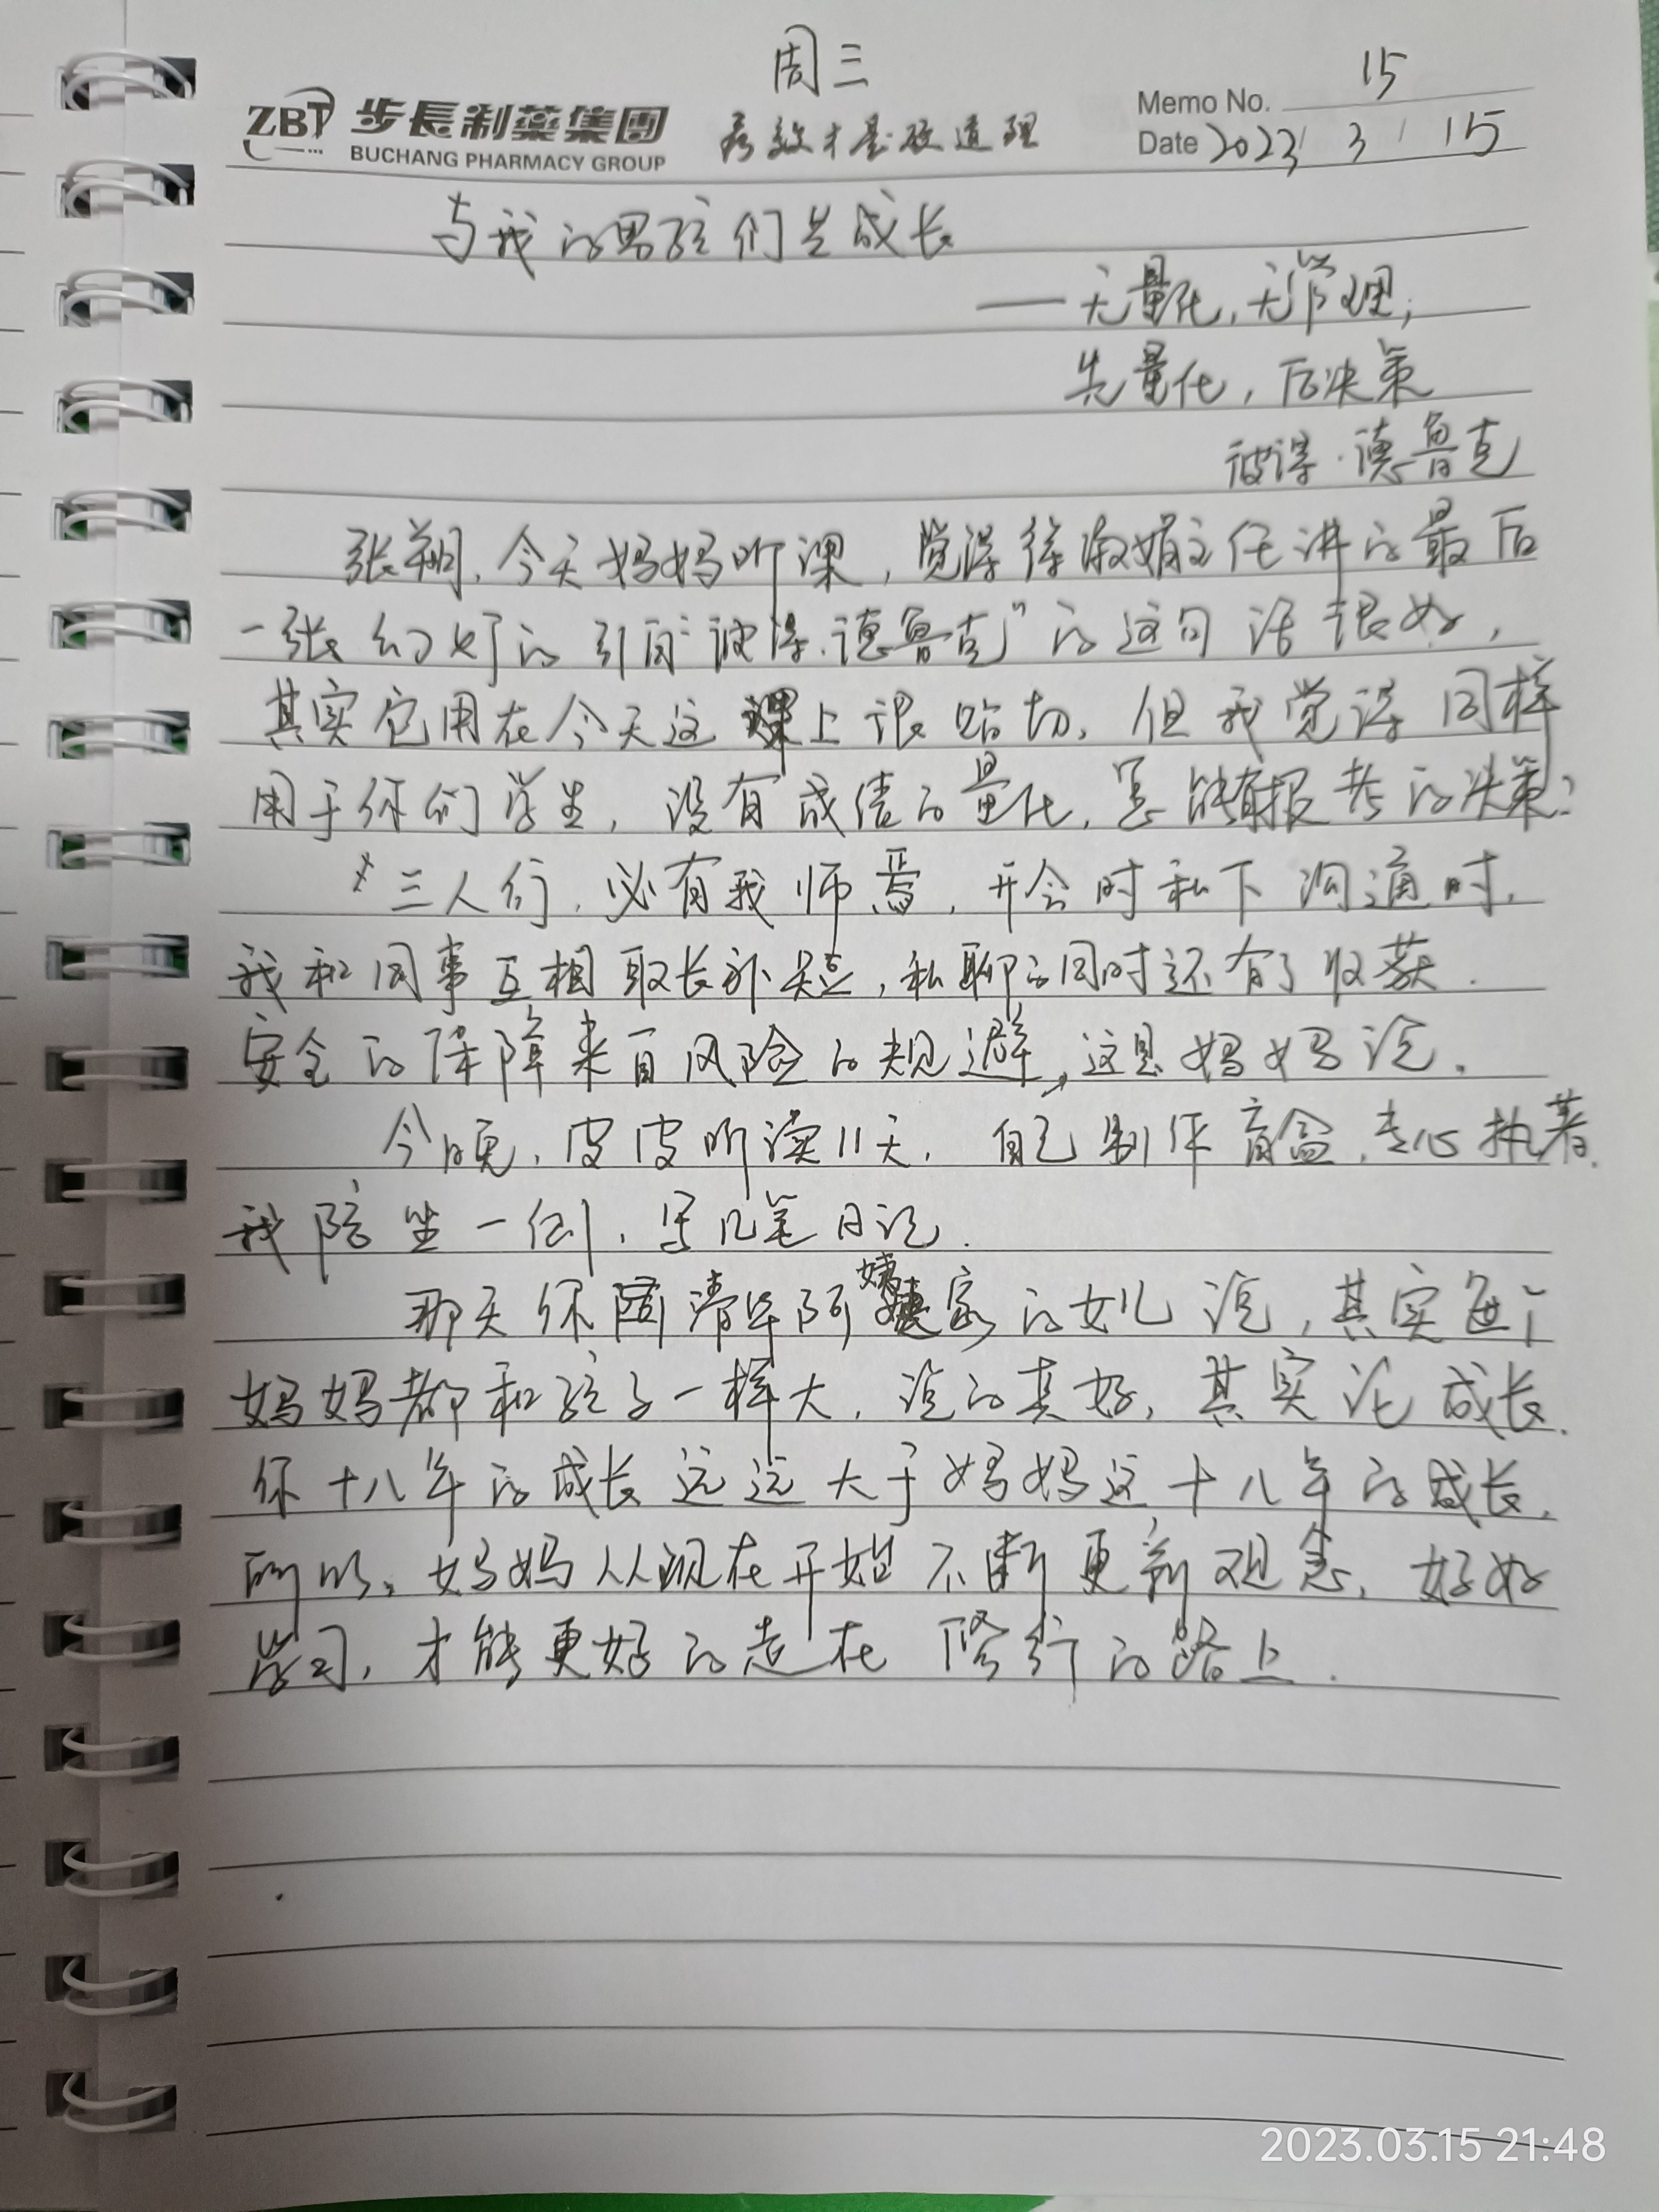 周三
ZBT 步長制藥集團
BUCHANG PHARMACY GROUP
疗效才是硬道理
Memo No. 15
Date 2023 / 3 / 15
与我的男孩们共成长
——无量化,无管理;
先量化,后决策
彼得·德鲁克
张翔,今天妈妈听课,觉得徐淑娟主任讲的最后
一张幻灯的引用“彼得·德鲁克”的这句话很好,
其实它用在今天这课上很贴切,但我觉得同样
用于你们学生,没有成绩的量化,怎能有报考的决策?
三人行,必有我师焉,开会时私下沟通时,
我和同事互相取长补短,私聊的同时还有了收获.
安全的保障来自风险的规避,这是妈妈说.
今晚,皮皮听读11天,自己制作盲盒,专心执著.
我陪坐一侧,写几笔日记.
那天你周清华阿姨家的女儿说,其实每个
妈妈都和孩子一样大,说的真好,其实论成长.
你十八年的成长远远大于妈妈这十八年的成长.
所以,妈妈从现在开始不断更新观念,好好
学习,才能更好的走在陪行的路上.
2023.03.15 21:48